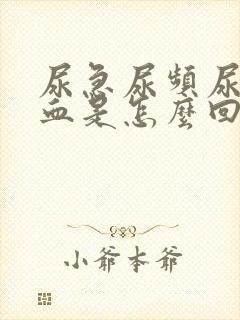 尿急尿頻尿
血是怎麼回
小爺本爺